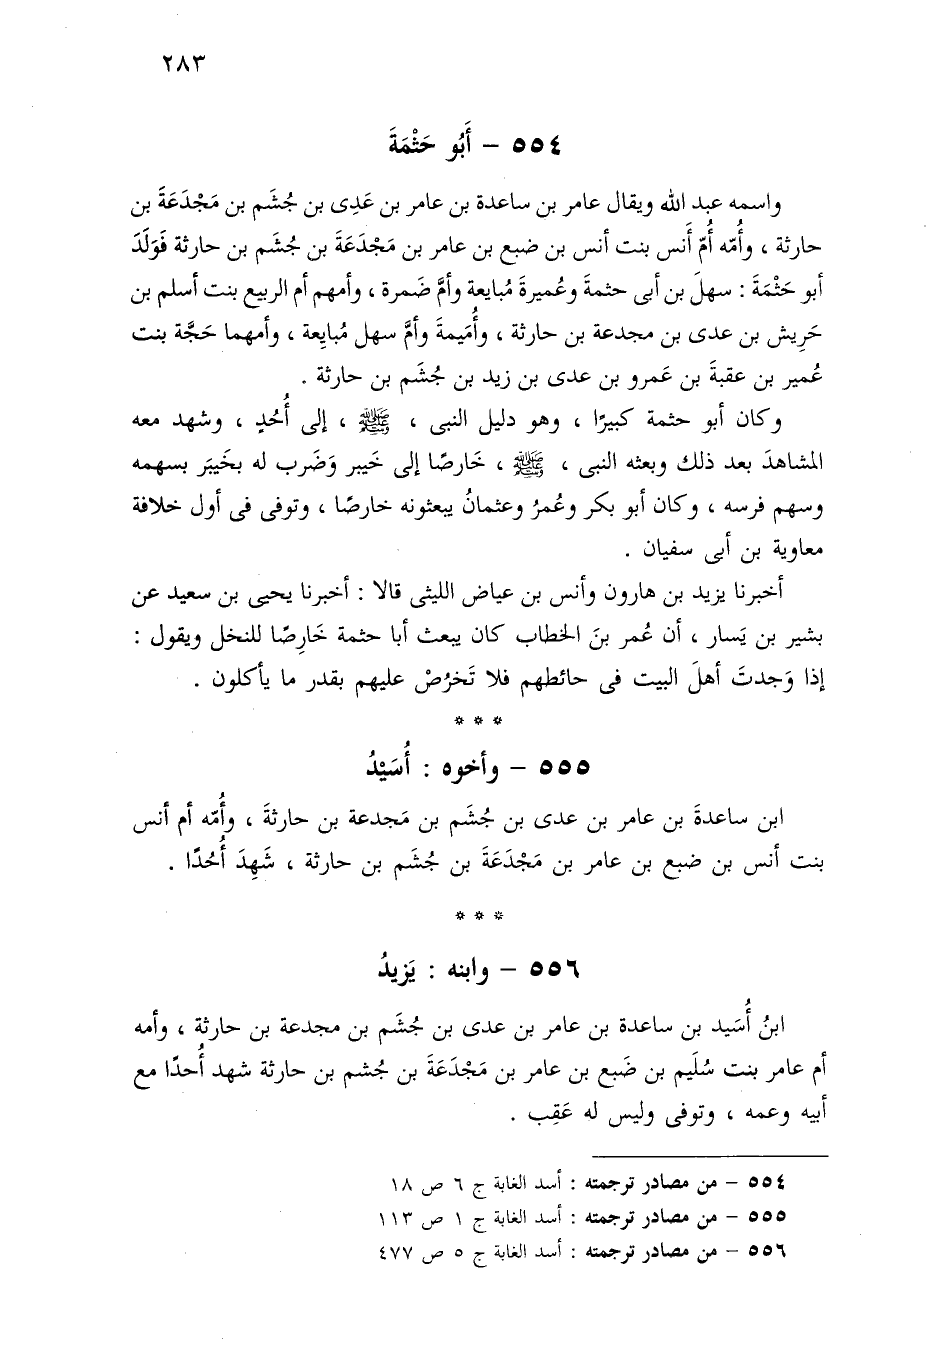 ٢٨٣
٥٥٤ - أَبُو حَثْمَةَ
واسمه عبد الله ويقال عامر بن ساعدة بن عامر بن عَدِى بن جُشَم بن مَجْدَعَةَ بن
حارثة ، وأُمّه أُمّ أَنس بنت أنس بن ضبع بن عامر بن مَجْدَعَةَ بن جُشَم بن حارثة فَوَلَدَ
أبو حَثْمَةَ : سهلَ بن أبى حثمةَ وعُميرةَ مُبايعة وأمَّ ضَمرة ، وأمهم أم الربيع بنت أسلم بن
حَرِيش بن عدى بن مجدعة بن حارثة ، وأُمَيمةَ وأمَّ سهل مُبايِعة ، وأمهما حَجَّة بنت
عُمير بن عقبةَ بن عَمرو بن عدى بن زيد بن جُشَم بن حارثة .
وكان أبو حثمة كبيرًا ، وهو دليل النبى ، ﷺ ، إلى أُحُدٍ ، وشهد معه
المشاهدَ بعد ذلك وبعثه النبى ، ﷺ ، خَارصًا إلى خَيبر وَضَرب له بخَيبَر بسهمه
وسهم فرسه ، وكان أبو بكر وعُمرُ وعثمانُ يبعثونه خارصًا ، وتوفى فى أول خلافة
معاوية بن أبى سفيان .
أخبرنا يزيد بن هارون وأنس بن عياض الليثى قالا : أخبرنا يحيى بن سعيد عن
بشير بن يَسار ، أن عُمر بنَ الخطاب كان يبعث أبا حثمة خَارِصًا للنخل ويقول :
إذا وَجدتَ أهلَ البيت فى حائطهم فلا تَخرُصْ عليهم بقدر ما يأكلون .
* * *
٥٥٥ - وأخوه : أُسَيْدُ
ابن ساعدةَ بن عامر بن عدى بن جُشَم بن مَجدعة بن حارثةَ ، وأُمّه أم أنس
بنت أنس بن ضبع بن عامر بن مَجْدَعَةَ بن جُشَم بن حارثة ، شَهِدَ أُحُدًا .
* * *
٥٥٦ - وابنه : يَزيدُ
ابنُ أُسَيد بن ساعدة بن عامر بن عدى بن جُشَم بن مجدعة بن حارثة ، وأمه
أم عامر بنت سُلَيم بن ضَبع بن عامر بن مَجْدَعَةَ بن جُشم بن حارثة شهد أُحدًا مع
أبيه وعمه ، وتوفى وليس له عَقِب .
٥٥٤ - من مصادر ترجمته : أسد الغابة ج ٦ ص ١٨
٥٥٥ - من مصادر ترجمته : أسد الغابة ج ١ ص ١١٣
٥٥٦ - من مصادر ترجمته : أسد الغابة ج ٥ ص ٤٧٧